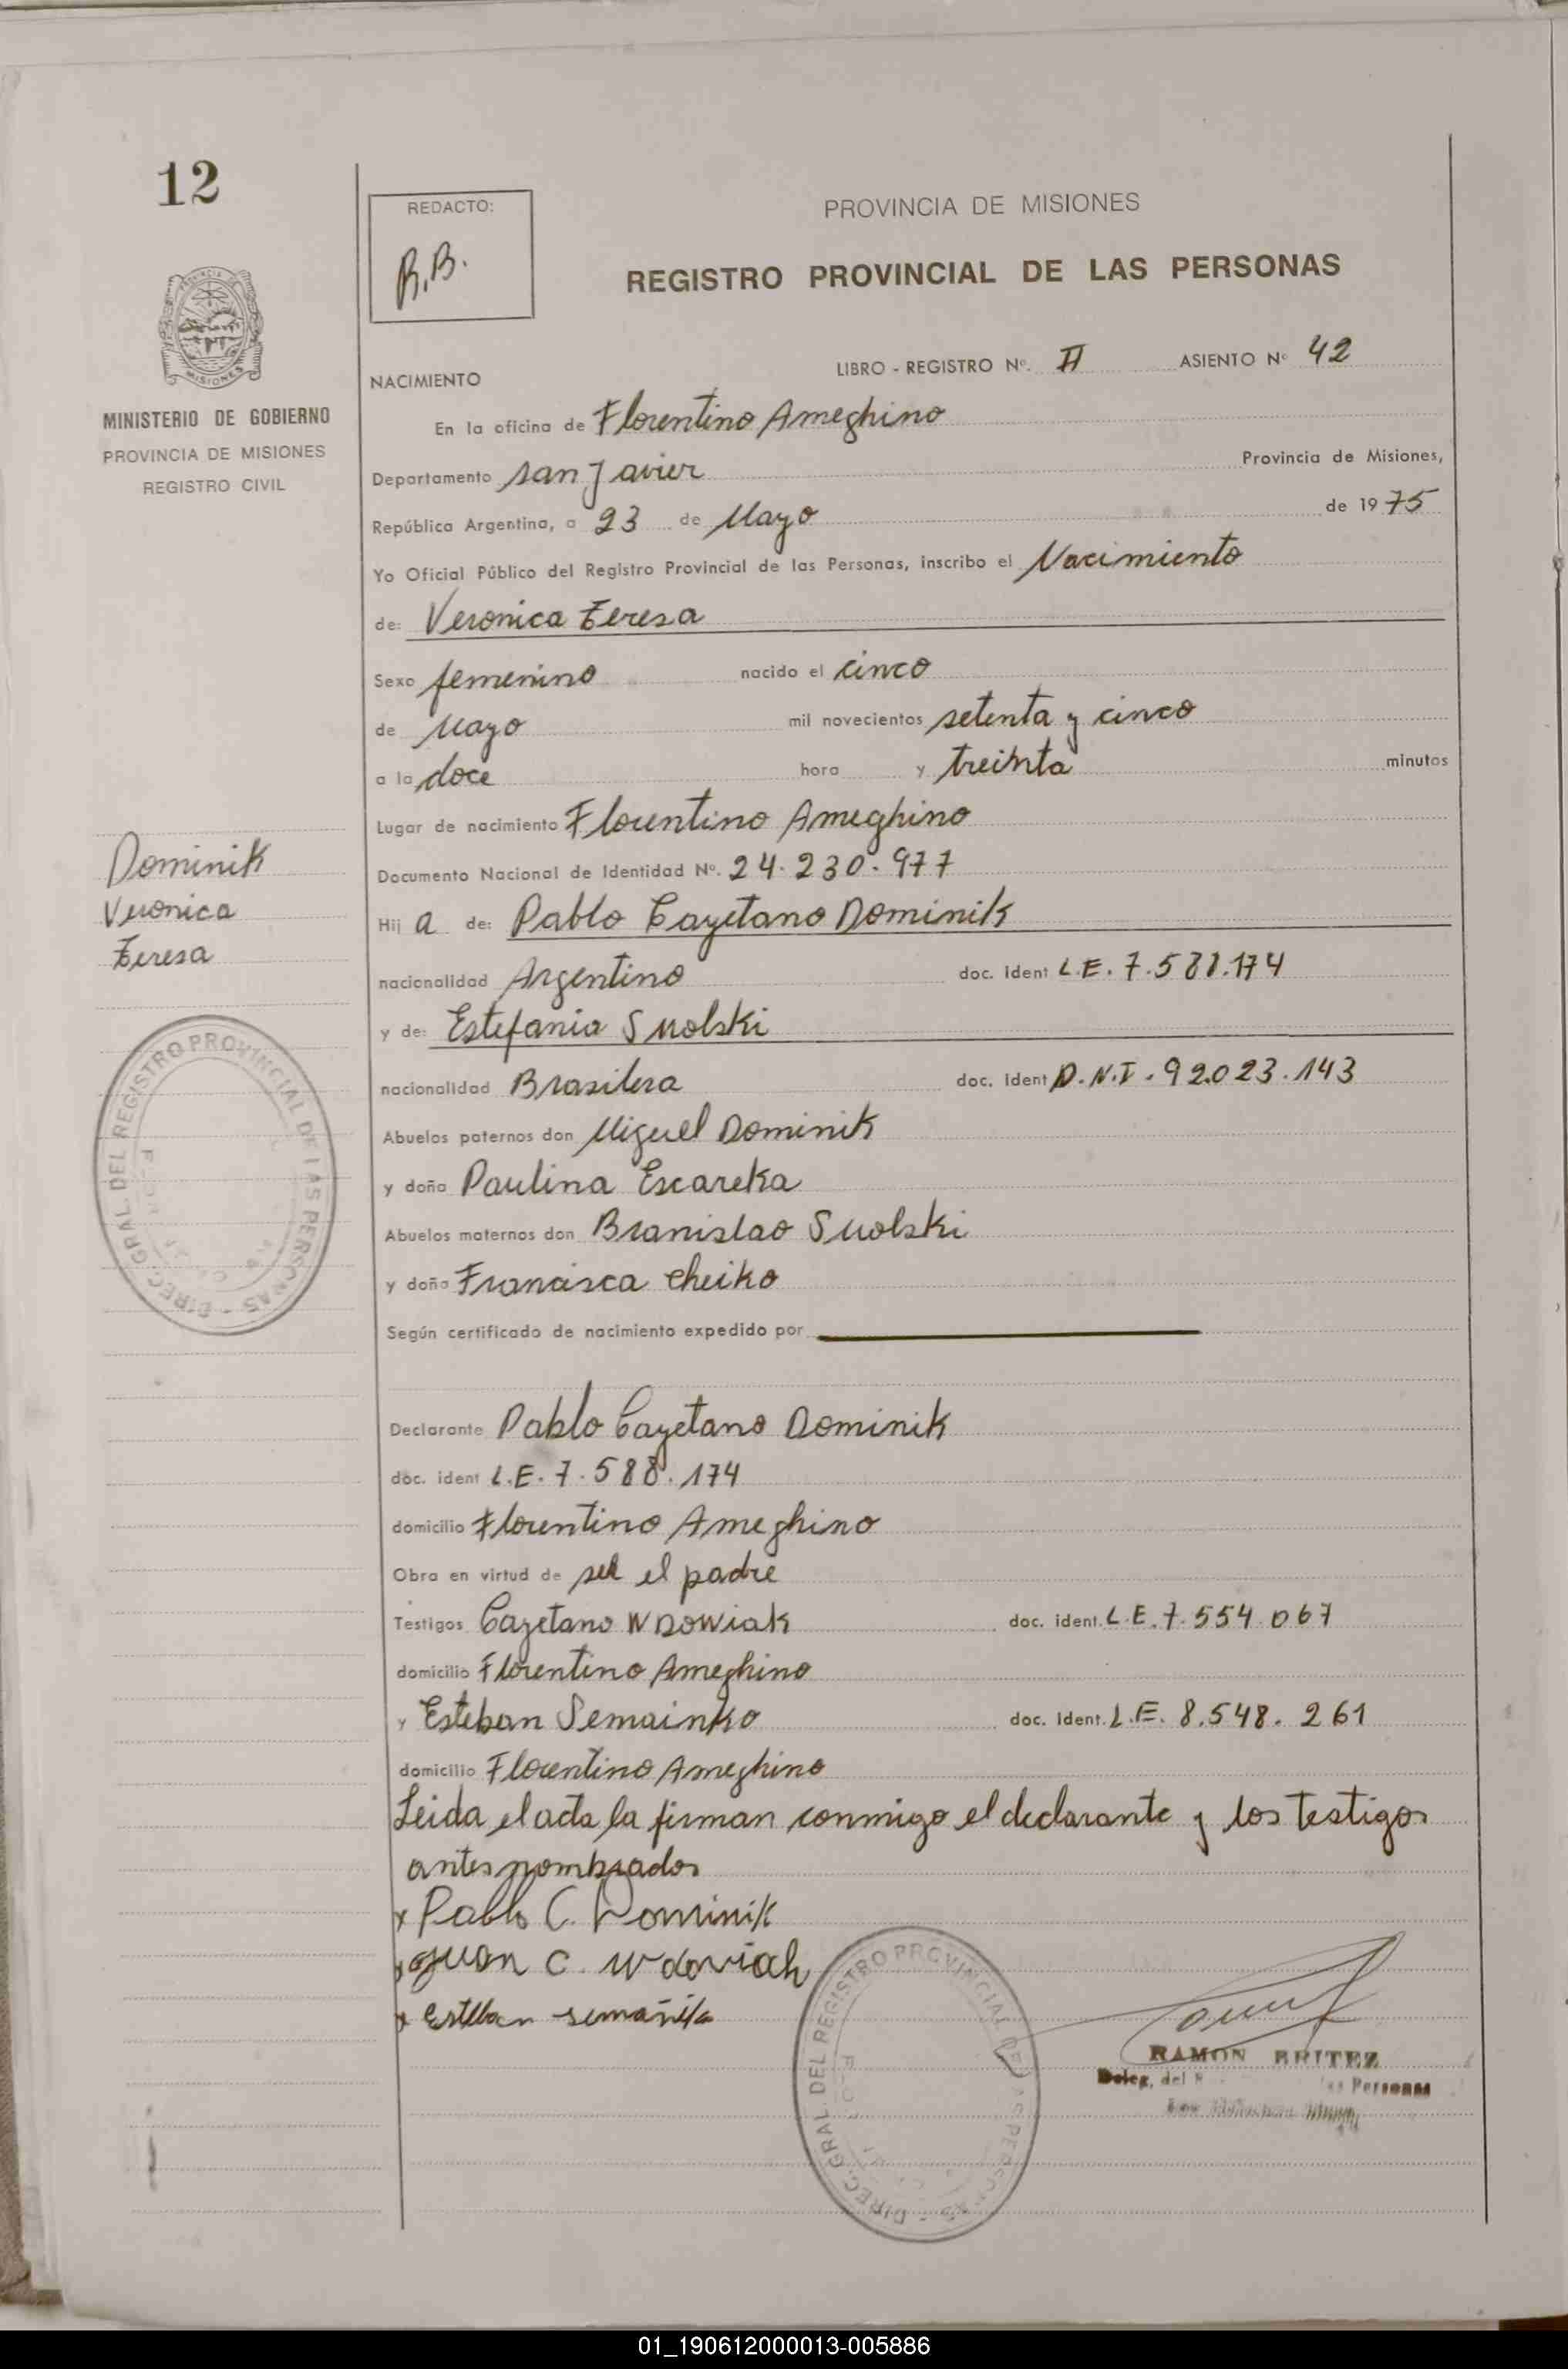 12
REDACTO:
R.B.
PROVINCIA DE MISIONES
REGISTRO PROVINCIAL DE LAS PERSONAS
MISIONES
MINISTERIO DE GOBIERNO
PROVINCIA DE MISIONES
REGISTRO CIVIL
NACIMIENTO
LIBRO - REGISTRO Nº. II ASIENTO Nº 42
En la oficina de Florentino Ameghino
Departamento San Javier Provincia de Misiones,
República Argentina, a 23 de Mayo de 1975
Yo Oficial Público del Registro Provincial de las Personas, inscribo el Nacimiento
de: Veronica Teresa
Sexo femenino nacido el cinco
de Mayo mil novecientos setenta y cinco
a la doce hora y treinta minutos
Lugar de nacimiento Florentino Ameghino
Documento Nacional de Identidad Nº. 24.230.977
Hij a de: Pablo Cayetano Dominik
nacionalidad Argentino doc. ident L.E. 7.588.174
y de: Estefania Smolski
nacionalidad Brasilera doc. ident D.N.I. 92.023.143
Abuelos paternos don Miguel Dominik
y doña Paulina Escareka
Abuelos maternos don Branislao Smolski
y doña Francisca Cheiko
Según certificado de nacimiento expedido por
Declarante Pablo Cayetano Dominik
doc. ident L.E. 7.588.174
domicilio Florentino Ameghino
Obra en virtud de ser el padre
Testigos Cayetano Wdowiak doc. ident. L.E. 7.554.067
domicilio Florentino Ameghino
y Esteban Semainko doc. ident. L.E. 8.548.261
domicilio Florentino Ameghino
Leida el acta la firman conmigo el declarante y los testigos
antes nombrados
x Pablo C. Dominik
x Juan C. Wdoviak
x Esteban
Dominik
Veronica
Teresa
DIREC. GRAL. DEL REGISTRO PROVINCIAL DE LAS PERSONAS
DIREC. GRAL. DEL REGISTRO PROVINCIAL DE LAS PERSONAS
RAMON BRITEZ
Deleg. del Personas
01_190612000013-005886